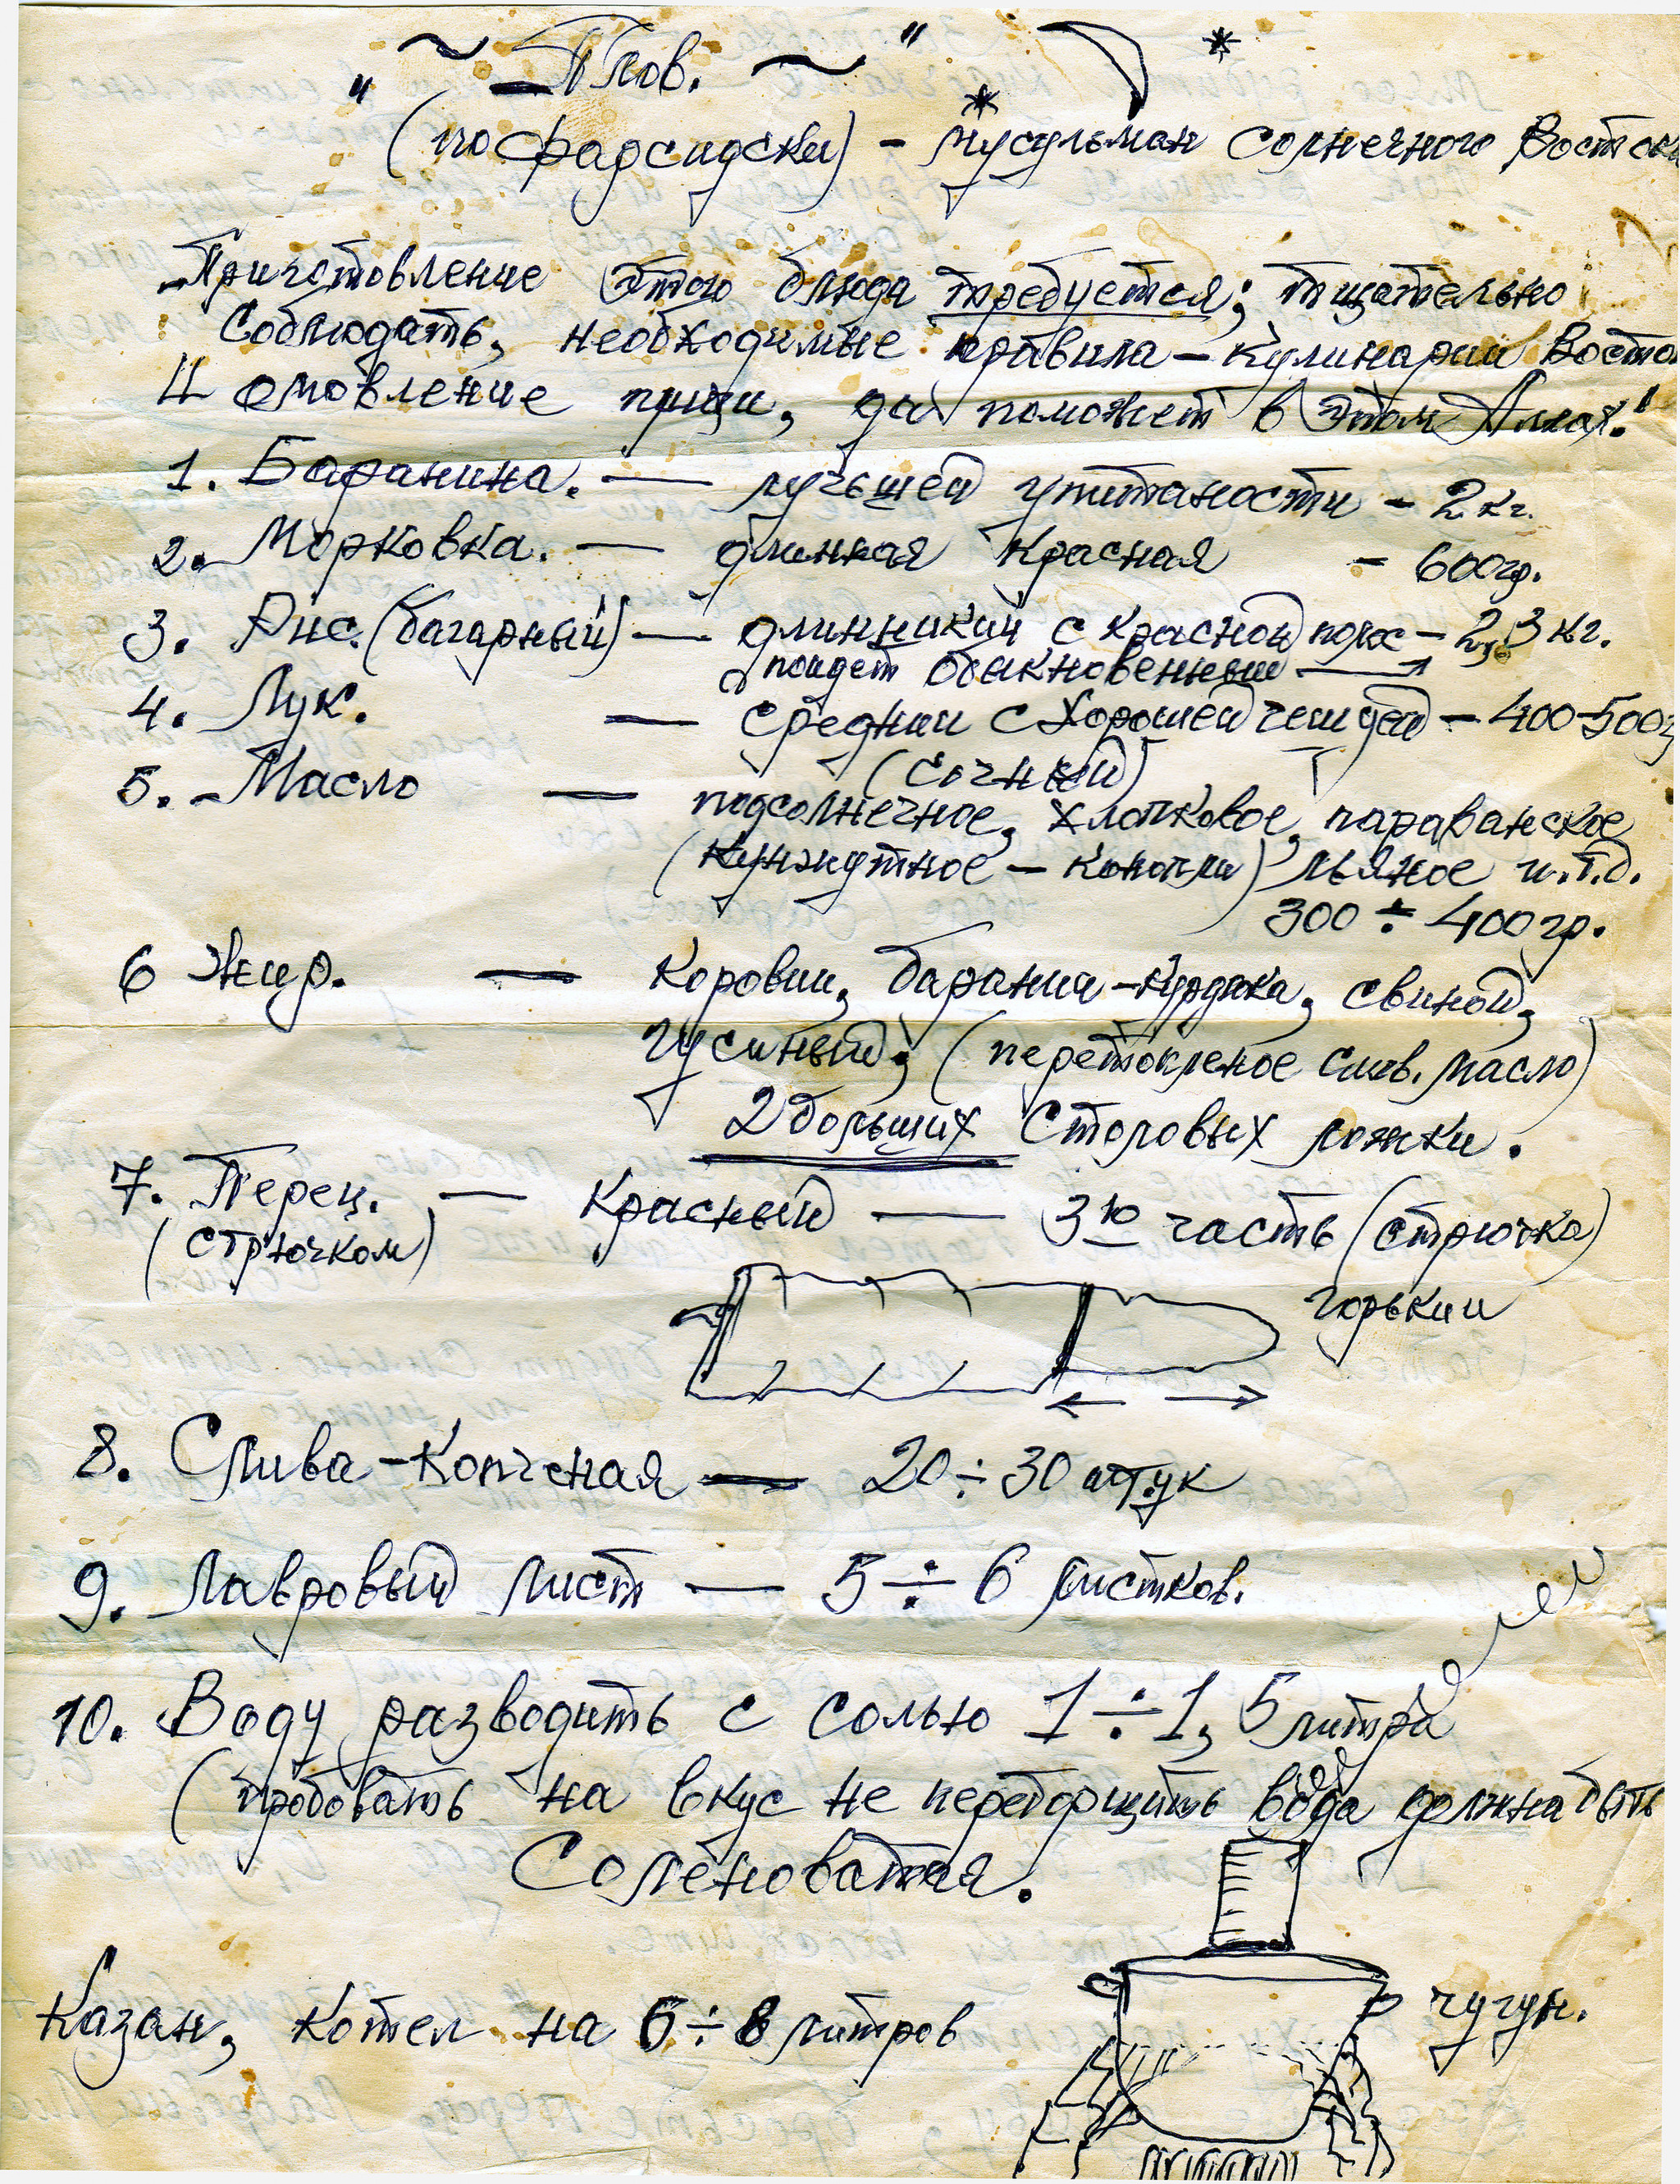 " ~ Плов. ~ "
(по фарсидски) - мусульман Солнечного Востока
Приготовление этого блюда требуется; тщательно
Соблюдать, необходимые правила - кулинарии Восто
И омовление пищи, да поможет в этом Аллах!
1. Баранина. — лучьшей упитаности - 2 кг.
2. Морковка. — длинная красная - 600 гр.
3. Рис. (багарный) — длинникий с красной полос - 2,3 кг.
пойдет обыкновенный →
4. Лук. — средний с хорошей чешуей - 400-500г
(сочный)
5. Масло — подсолнечное, хлопковое, параванское
(кунжутное - конопли) льяное и.т.д.
300 ÷ 400 гр.
6 Жир. — Коровий, баранич - курдюка, свиной,
гусиный; (перетопленое слив. масло)
2 больших Столовых ложки.
7. Перец. — красный — 3ю часть (стрючка)
(стрючком)
горький
8. Слива - Копченая — 20 ÷ 30 штук
9. Лавровый лист — 5 ÷ 6 листков.
10. Воду разводить с солью 1 ÷ 1,5 литра
(пробовать на вкус не переборщить вода должна быть
Солёноватая.
Казан, котел на 6 ÷ 8 литров
чугун.